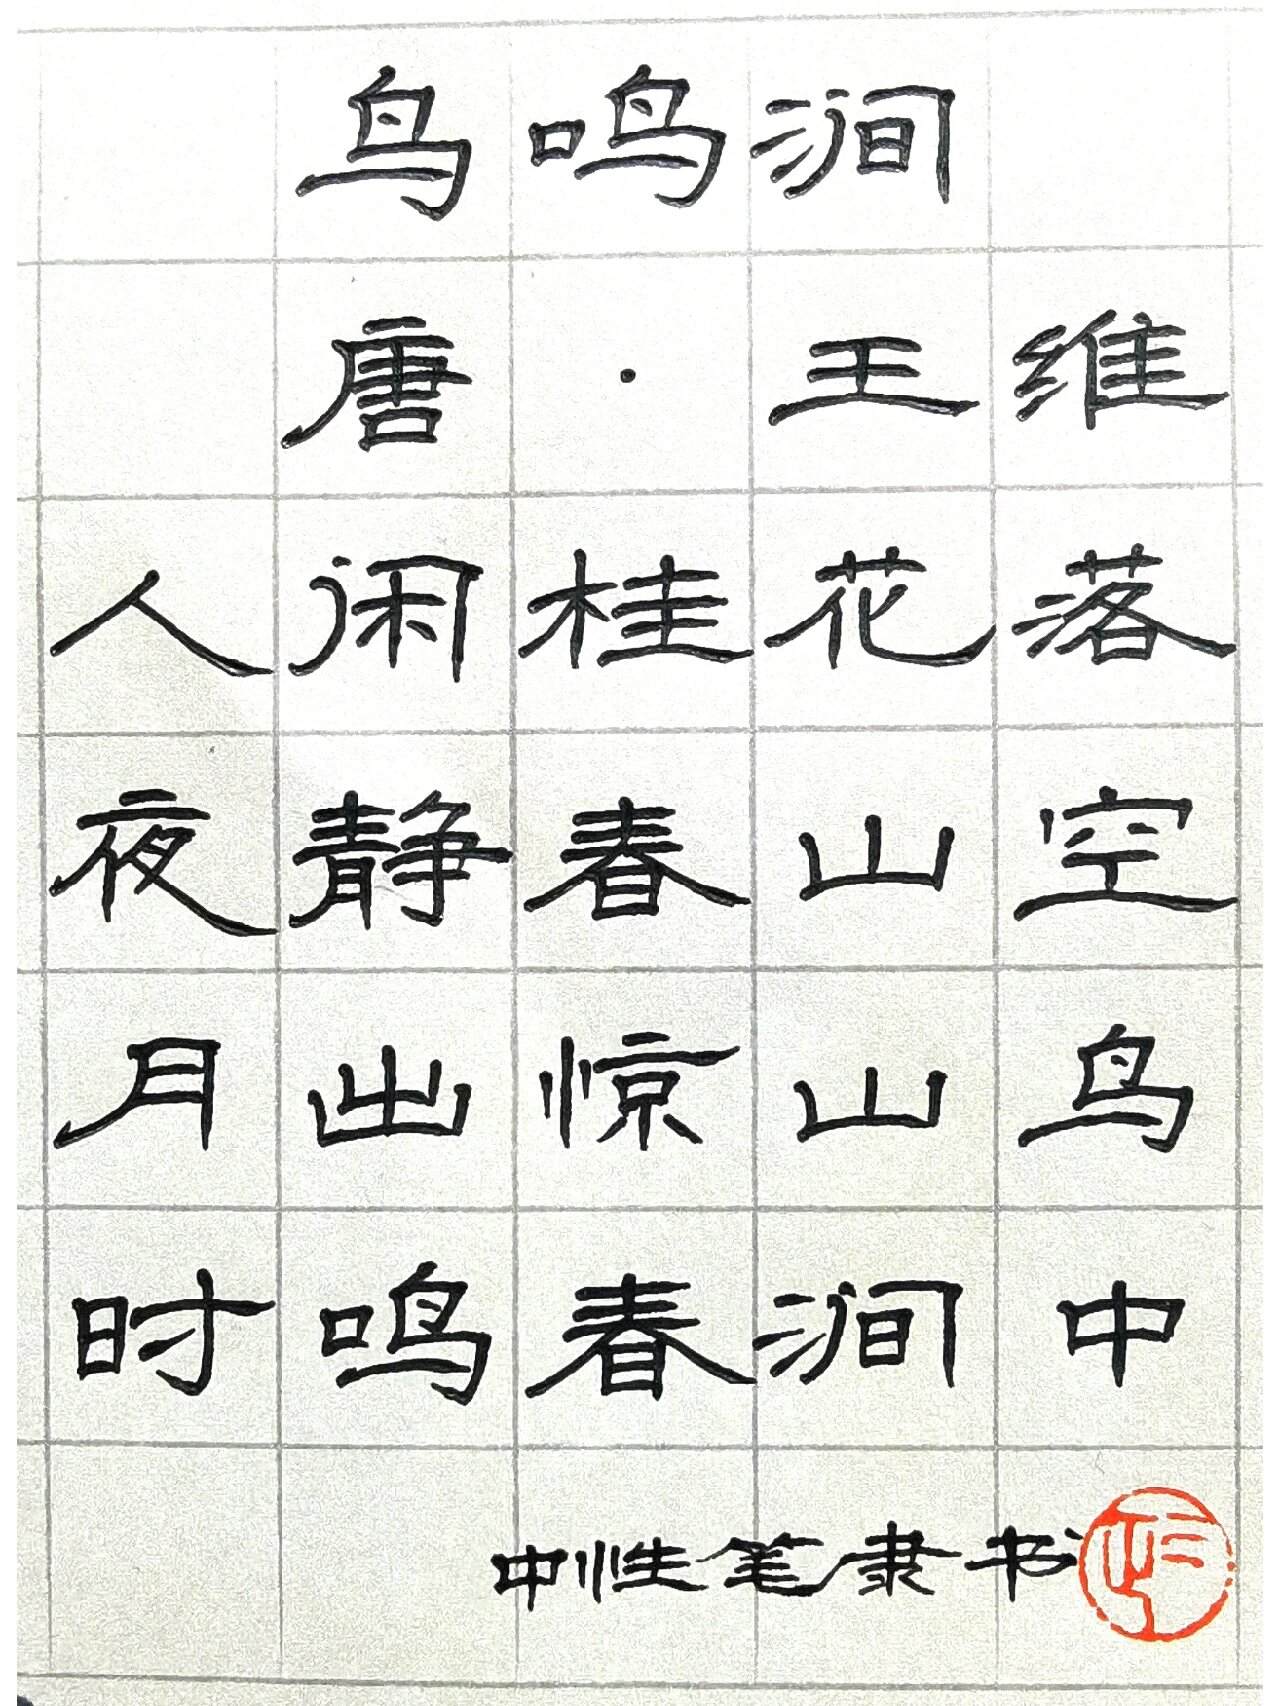 鸟鸣涧
唐·王维
人闲桂花落
夜静春山空
月出惊山鸟
时鸣春涧中
中性笔隶书